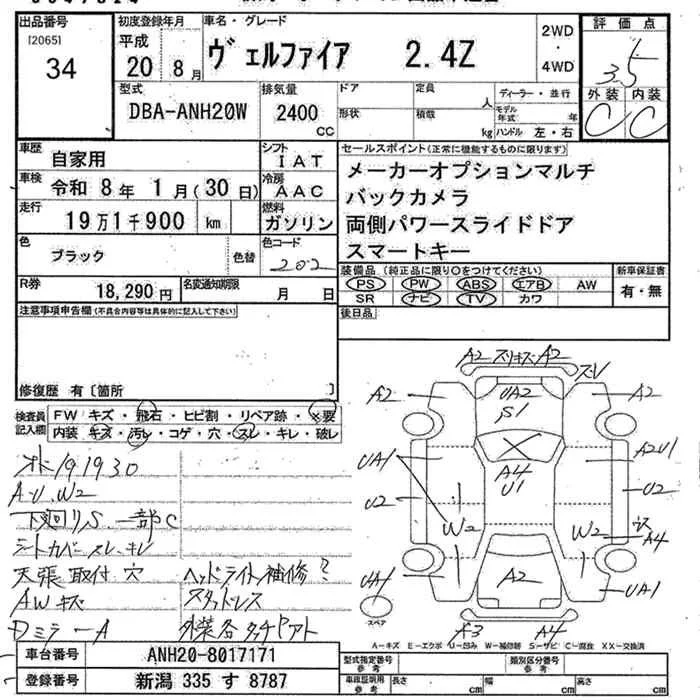 出品番号
[2065]
34
初度登録年月
平成
20年 8月
車名・グレード
ヴェルファイア 2.4Z
2WD
・
4WD
評価点
3.5
外装 内装
C C
型式
DBA-ANH20W
排気量
2400
CC
ドア
形状
定員
人
積載
kg
ディーラー・並行
モデル年式
年
ハンドル 左・右
車歴
自家用
シフト
IAT
車検
令和 8年 1月(30日)
冷房
AAC
走行
19万1千900 km
燃料
ガソリン
色
ブラック
色替
色コード
202
セールスポイント(正常に機能するものに限ります)
メーカーオプションマルチ
バックカメラ
両側パワースライドドア
スマートキー
装備品(純正品に限り○をつけてください)
PS PW ABS エアB AW
SR ナビ TV カワ
新車保証書
有・無
後日品
R券
18,290円
名変通知期限
月 日
注意事項申告欄(不具合内容等は具体的に記入して下さい)
修復歴 有〔箇所 〕
検査員記入欄
FW キズ・飛石・ヒビ割・リペア跡・×要
内装 キズ・汚レ・コゲ・穴・スレ・キレ・破レ
191930
A・U、W2
下廻りS、一部C
シートカバー スレ、キレ
天張取付穴
AWキズ
Dミラ―A
ヘッドライト補修?
スタッドレス
外装各タッチアト
A2 スリキズ A2
スレ
A2
UA2
S1
A2
UA1
A4
U1
A2U1
U2
U2
W2
W2
A4
UA1
A2
UA1
スペア
A3
A4
A―キズ E―エクボ U―凹み W―補修跡 S―サビ C―腐食 XX―交換済
車台番号
ANH20-8017171
登録番号
新潟 335 す 8787
型式指定番号
参考
類別区分番号
参考
車庫証明用
参考
長さ
cm
幅
cm
高さ
cm